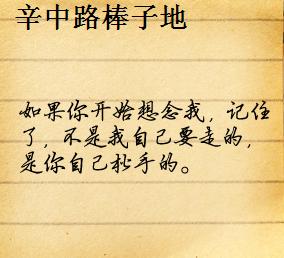 辛中路棒子地
如果你开始想念我，记住
了，不是我自己要走的，
是你自己松手的。